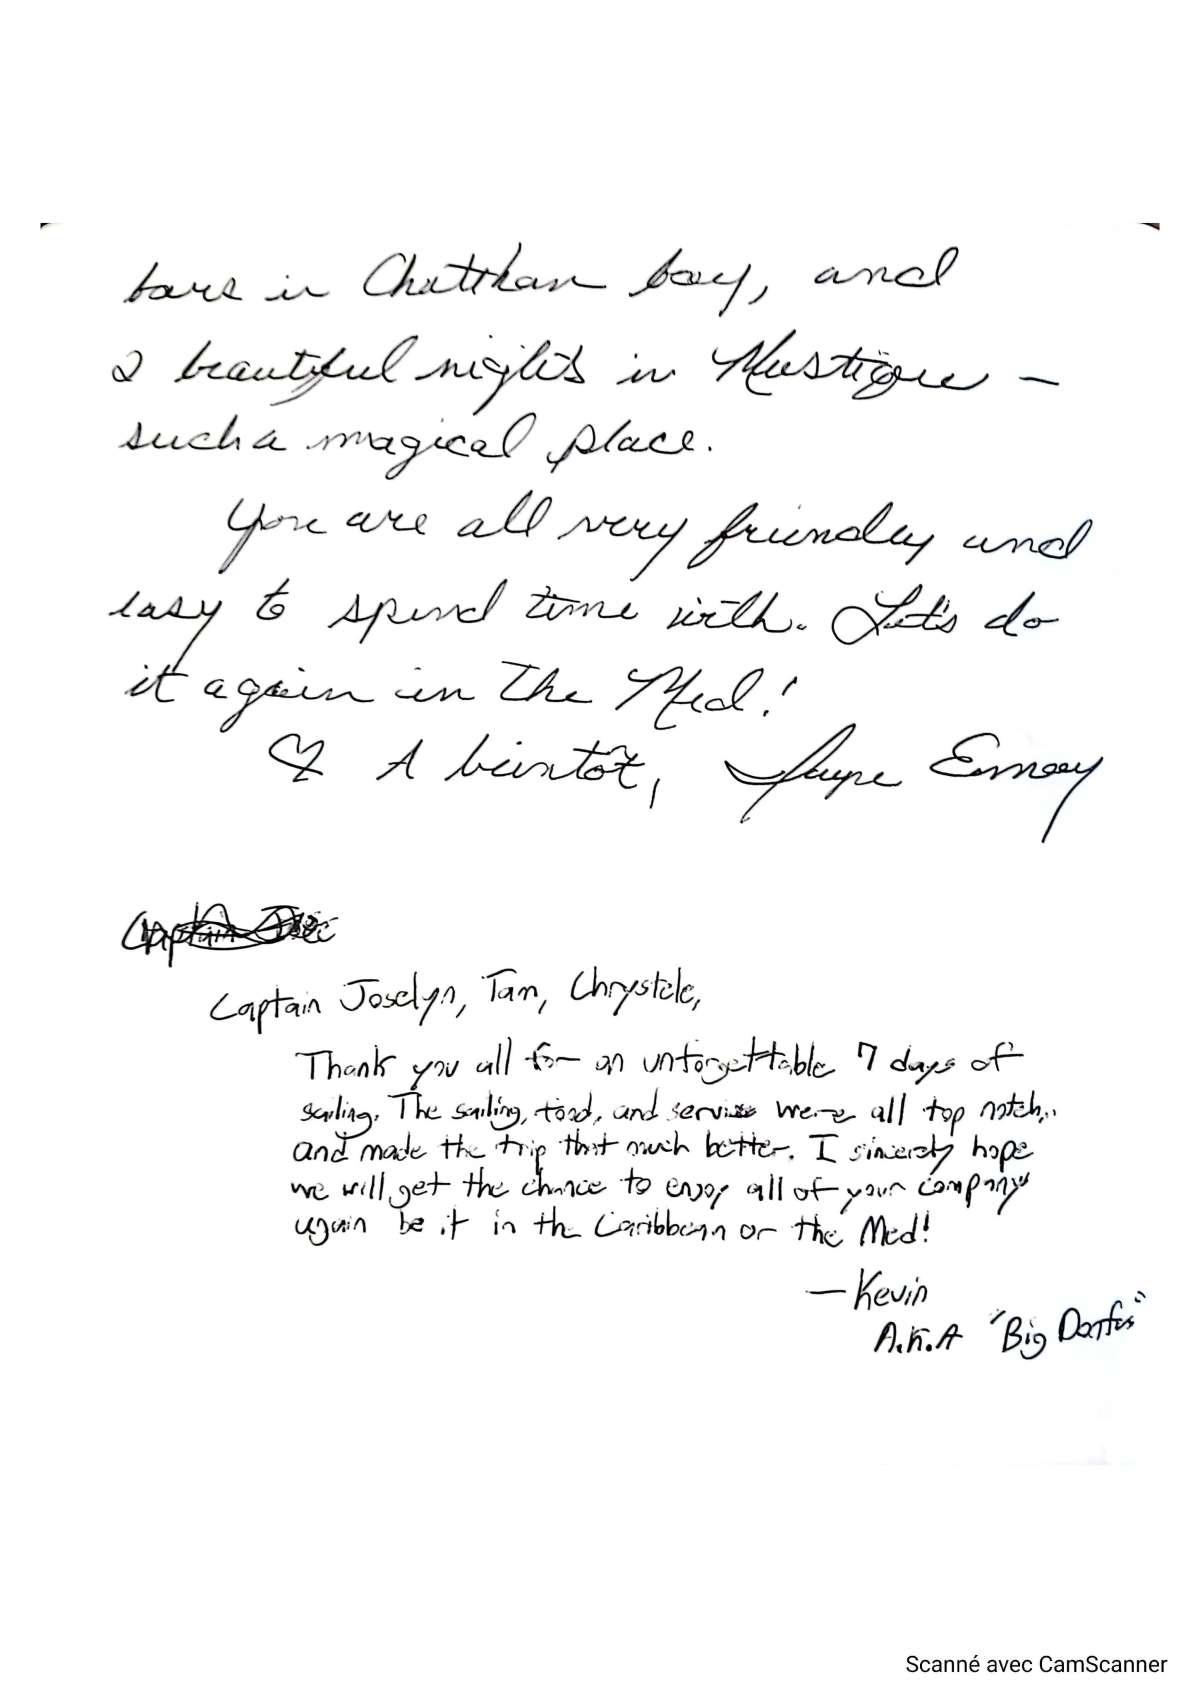 bars in Chatthan bay, and
2 beautiful nights in Mustique –
such a magical place.
You are all very friendly and
easy to spend time with. Let's do
it again in the Med!
♡ A bientôt, Jayne
Captain
Captain Joselyn, Tam, Chrystele,
Thank you all for an unforgettable 7 days of
sailing. The sailing, food, and service were all top notch,
and made the trip that much better. I sincerely hope
we will get the chance to enjoy all of your companys
again be it in the Caribbean or the Med!
— Kevin
A.K.A "Big
Scanné avec CamScanner